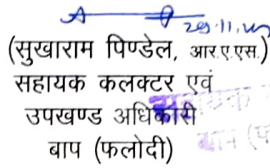 (सुखाराम पिण्डेल, आर.ए.एस.)
सहायक कलक्टर एवं
उपखण्ड अधिकारी
बाप (फलोदी)